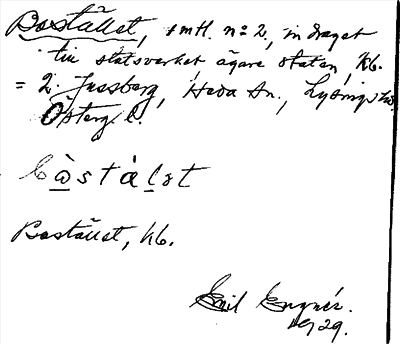 Bostället, smtl. nº 2, indraget
till statsverket ägare staten, kb.
= 2 Jussberg, Heda sn., Lysings hd.
Österg. l.
b ò s t à l s t
Bostället, kb.
Emil
1929.